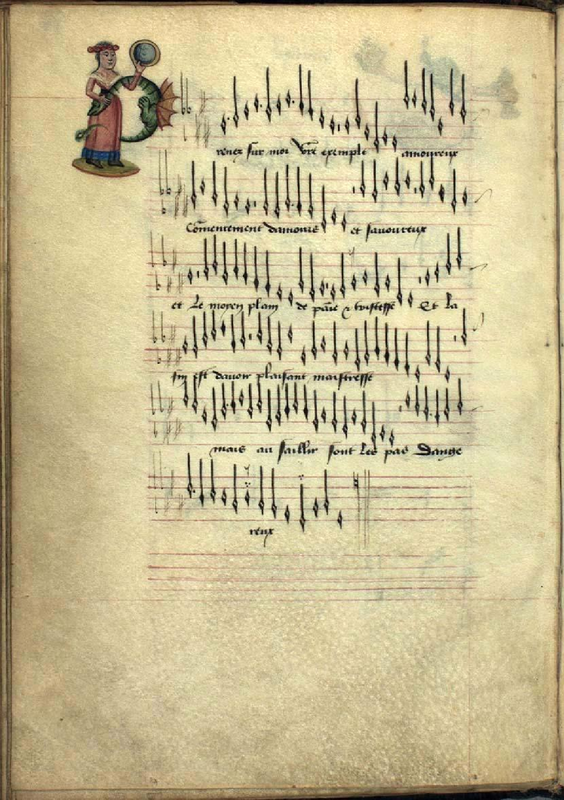 Prenez sur moi vr̄e exemple amoureux
Cōmencement damours et savoureux
et Le moyen plain de paīe & tristesse Et la
fin est davoir plaisant maistresse
mais au saillir sont les pas Dange
reux